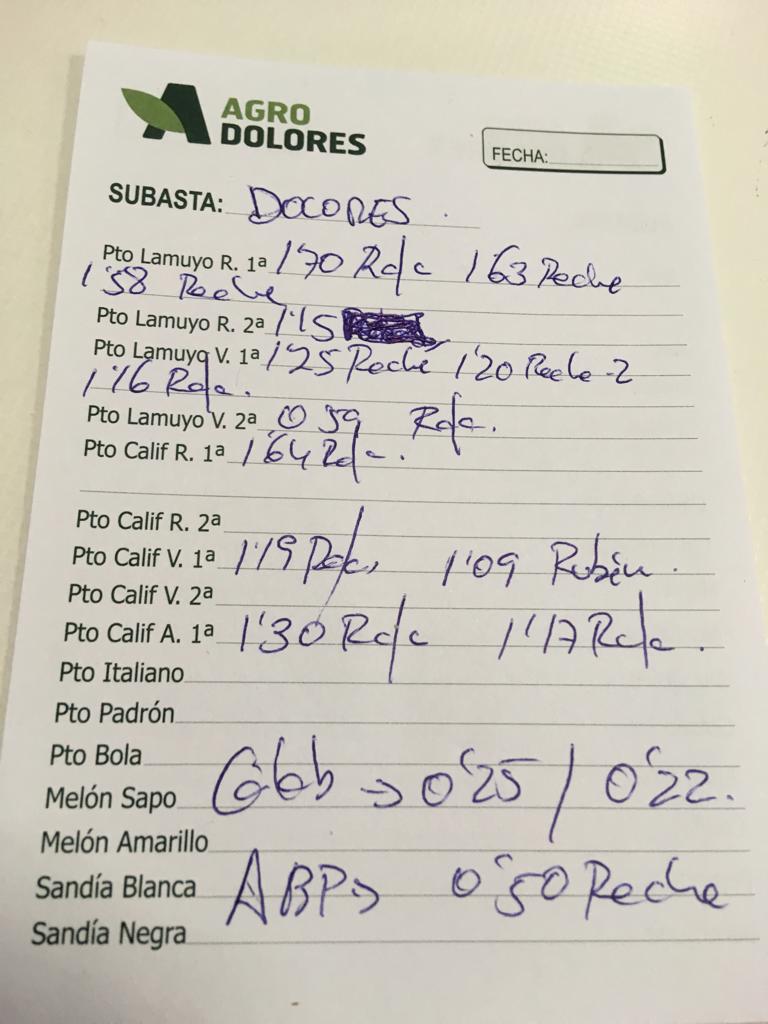 AGRO
DOLORES
FECHA:
SUBASTA: DOLORES.
Pto Lamuyo R. 1ª 1'70 Rafa 1'63 Reche
1'58 Reche
Pto Lamuyo R. 2ª 1'15
Pto Lamuyo V. 1ª 1'25 Reche 1'20 Reche-2
1'16 Rafa.
Pto Lamuyo V. 2ª 0'59 Rafa.
Pto Calif R. 1ª 1'64 Rafa.
Pto Calif R. 2ª
Pto Calif V. 1ª 1'19 Rafa, 1'09 Rubén.
Pto Calif V. 2ª
Pto Calif A. 1ª 1'30 Rafa 1'17 Rafa.
Pto Italiano
Pto Padrón
Pto Bola
Melón Sapo → 0'25 / 0'22.
Melón Amarillo
Sandía Blanca ABP→ 0'50 Reche
Sandía Negra